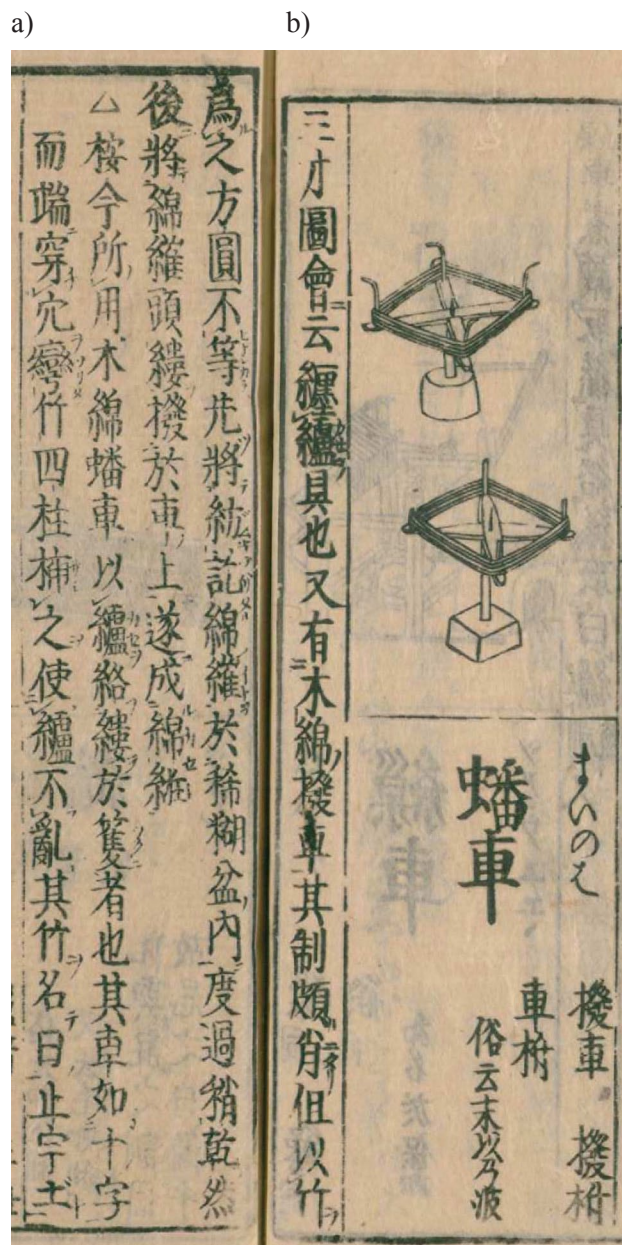 a)
b)
まいのは
蟠車
撥車 撥柎
車柎
俗云末以乃波
三才圖會云纒纑具也又有木綿撥車其制頗肖但以竹
爲之方圓不等先將紡訖綿維於稀糊盆內度過稍乾然
後將綿維頭縷撥於車上遂成綿紝
△桉今所用木綿蟠車以纑絡縷於篗者也其車如十字
而端穿穴彎竹四柱揷之使纑不亂其竹名曰止宇